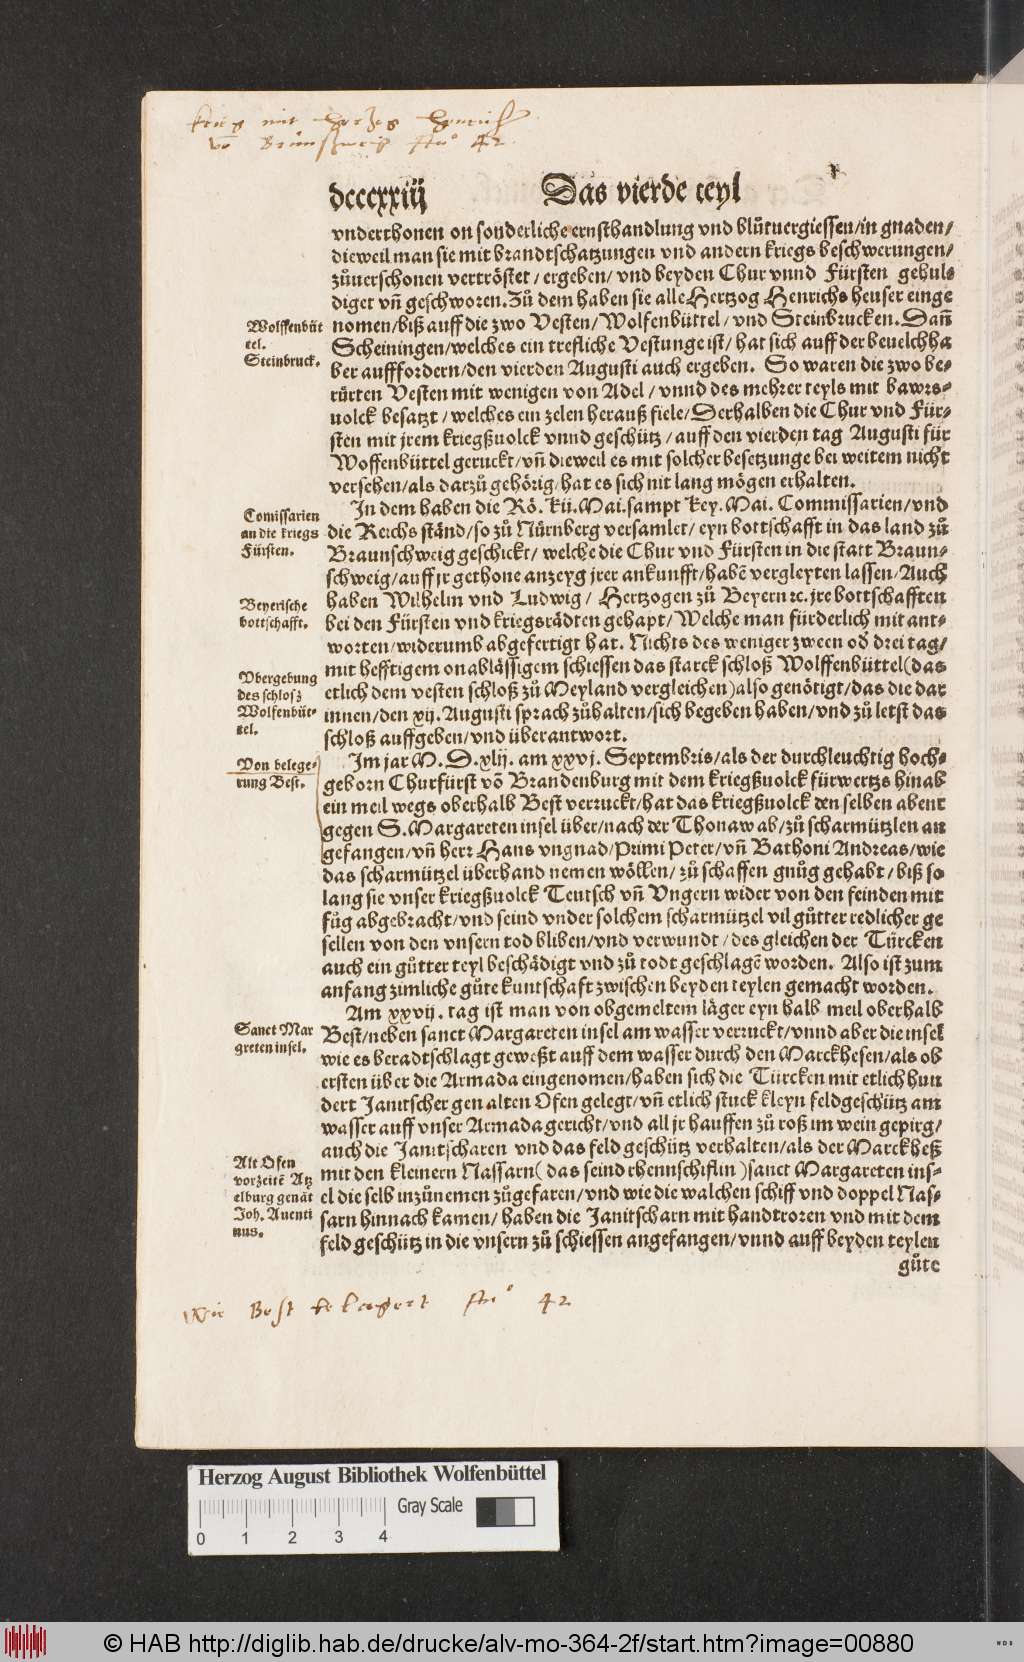 krieg mit hertzog henrich
vō Brunschweig Aō 42
dcccxxiiij Das vierde teyl
vnderthonen on sonderliche ernsthandlung vnd blůtuergiessen/in gnaden/
dieweil man sie mit brandtschatzungen vnd andern kriegs beschwerungen/
zůuerschonen vertröstet/ergeben/vnd beyden Chur vnnd Fürsten gehul⸗
diget vñ geschworen. Zů dem haben sie alle Hertzog Henrichs heuser einge
Wolffenbüt
tel.
Steinbruck.
nomen/biß auff die zwo Vesten/Wolfenbüttel/vnd Steinbrucken. Dañ
Scheiningen/welches ein trefliche Vestunge ist/hat sich auff der beuelchha
ber aufffordern/den vierden Augusti auch ergeben. So waren die zwo be⸗
rürten Vesten mit wenigen von Adel/vnnd des mehrer teyls mit bawrs⸗
uolck besatzt/welches ein zelen herauß fiele/Derhalben die Chur vnd Für⸗
sten mit jrem kriegßuolck vnnd geschütz/auff den vierden tag Augusti für
Woffenbüttel geruckt/vñ dieweil es mit solcher besetzunge bei weitem nicht
versehen/als darzů gehörig/hat es sich nit lang mögen erhalten.
Comissarien
an die kriegs
Fürsten.
In dem haben die Rö. Kü. Mai. sampt Key. Mai. Commissarien/vnd
die Reichs ständ/so zů Nürnberg versamlet/eyn bottschafft in das land zů
Braunschweig geschickt/welche die Chur vnd Fürsten in die statt Braun⸗
schweig/auff jr gethone anzeyg jrer ankunfft/habē vergleyten lassen/Auch
Beyerische
bottschafft.
haben Wilhelm vnd Ludwig/Hertzogen zů Beyern ꝛc. jre bottschafften
bei den Fürsten vnd kriegsrädten gehapt/Welche man fürderlich mit ant⸗
worten/widerumb abgefertigt hat. Nichts des weniger zween oď drei tag/
Vbergebung
des schlosz
Wolfenbüt⸗
tel.
mit hefftigem onablässigem schiessen das starck schloß Wolffenbüttel(das
etlich dem vesten schloß zů Meyland vergleichen)also genötigt/das die dar
innen/den xij. Augusti sprach zůhalten/sich begeben haben/vnd zů letst das
schloß auffgeben/vnd überantwort.
Von belege⸗
rung Best.
Im jar M.D.xlij. am xxvj. Septembris/als der durchleuchtig hoch⸗
geborn Churfürst vō Brandenburg mit dem kriegßuolck fürwertzs hinab
ein meil wegs oberhalb Best verruckt/hat das kriegßuolck den selben abent
gegen S. Margareten insel über/nach der Thonaw ab/zů scharmützlen an
gefangen/vñ herr Hans vngnad/Primi Peter/vñ Bathoni Andreas/wie
das scharmützel überhand nemen wöllen/zů schaffen gnůg gehabt/biß so
lang sie vnser kriegßuolck Teutsch vñ Vngern wider von den feinden mit
fůg abgebracht/vnd seind vnder solchem scharmützel vil gůtter redlicher ge
sellen von den vnsern tod bliben/vnd verwundt/des gleichen der Türcken
auch ein gůtter teyl beschädigt vnd zů todt geschlagē worden. Also ist zum
anfang zimliche gůte kuntschaft zwischen beyden teylen gemacht worden.
Am xxvij. tag ist man von obgemeltem läger eyn halb meil oberhalb
Sanct Mar
greten insel.
Best/neben sanct Margareten insel am wasser verruckt/vnnd aber die insel
wie es beradtschlagt geweßt auff dem wasser durch den Marckhesen/als ob
ersten über die Armada eingenomen/haben sich die Türcken mit etlich hun
dert Janitscher gen alten Ofen gelegt/vñ etlich stuck kleyn feldgeschütz am
wasser auff vnser Armada gericht/vnd all jr hauffen zů roß im wein gepirg/
auch die Janitscharen vnd das feld geschütz verhalten/als der Marckheß
Alt Ofen
vorzeitē Atz
elburg genāt
Joh. Auenti
nus.
mit den kleinern Nassarn(das seind rhennschiflin)sanct Margareten ins⸗
el die selb inzůnemen zůgefaren/vnd wie die walchen schiff vnd doppel Nas⸗
sarn hinnach kamen/haben die Janitscharn mit handtroren vnd mit dem
feld geschütz in die vnsern zů schiessen angefangen/vnnd auff beyden teylen
gůte
Wie Best belagert Aō 42
Herzog August Bibliothek Wolfenbüttel
Gray Scale
0 1 2 3 4
© HAB http://diglib.hab.de/drucke/alv-mo-364-2f/start.htm?image=00880